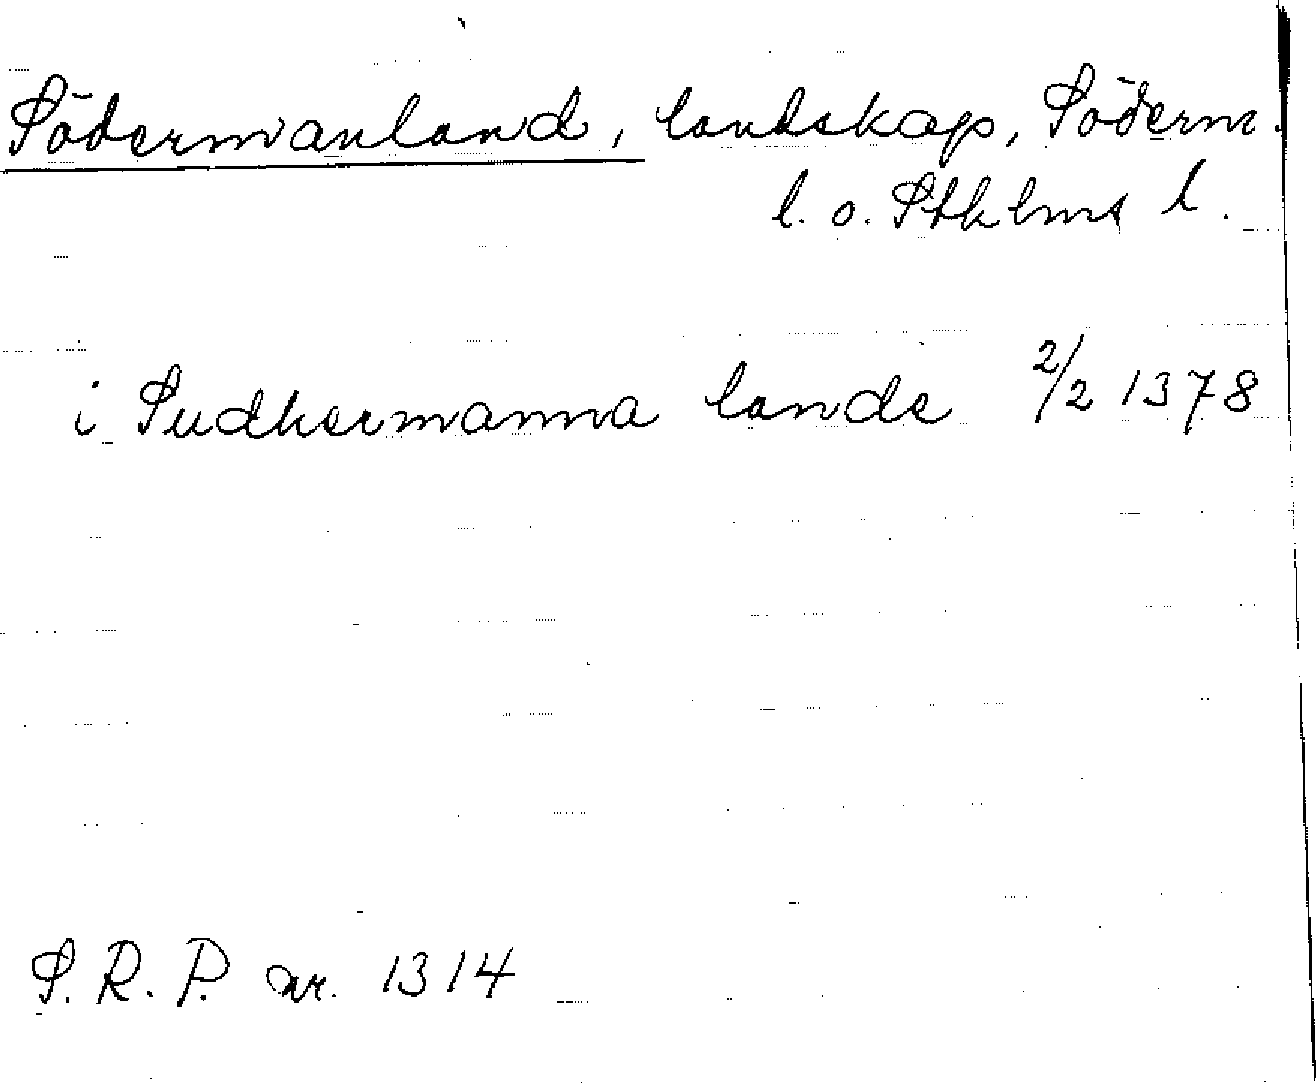 Södermanland, landskap, Söderm.
l. o. Sthlms l.
i Sudhermanna lande 2/2 1378
S. R. P. nr. 1314